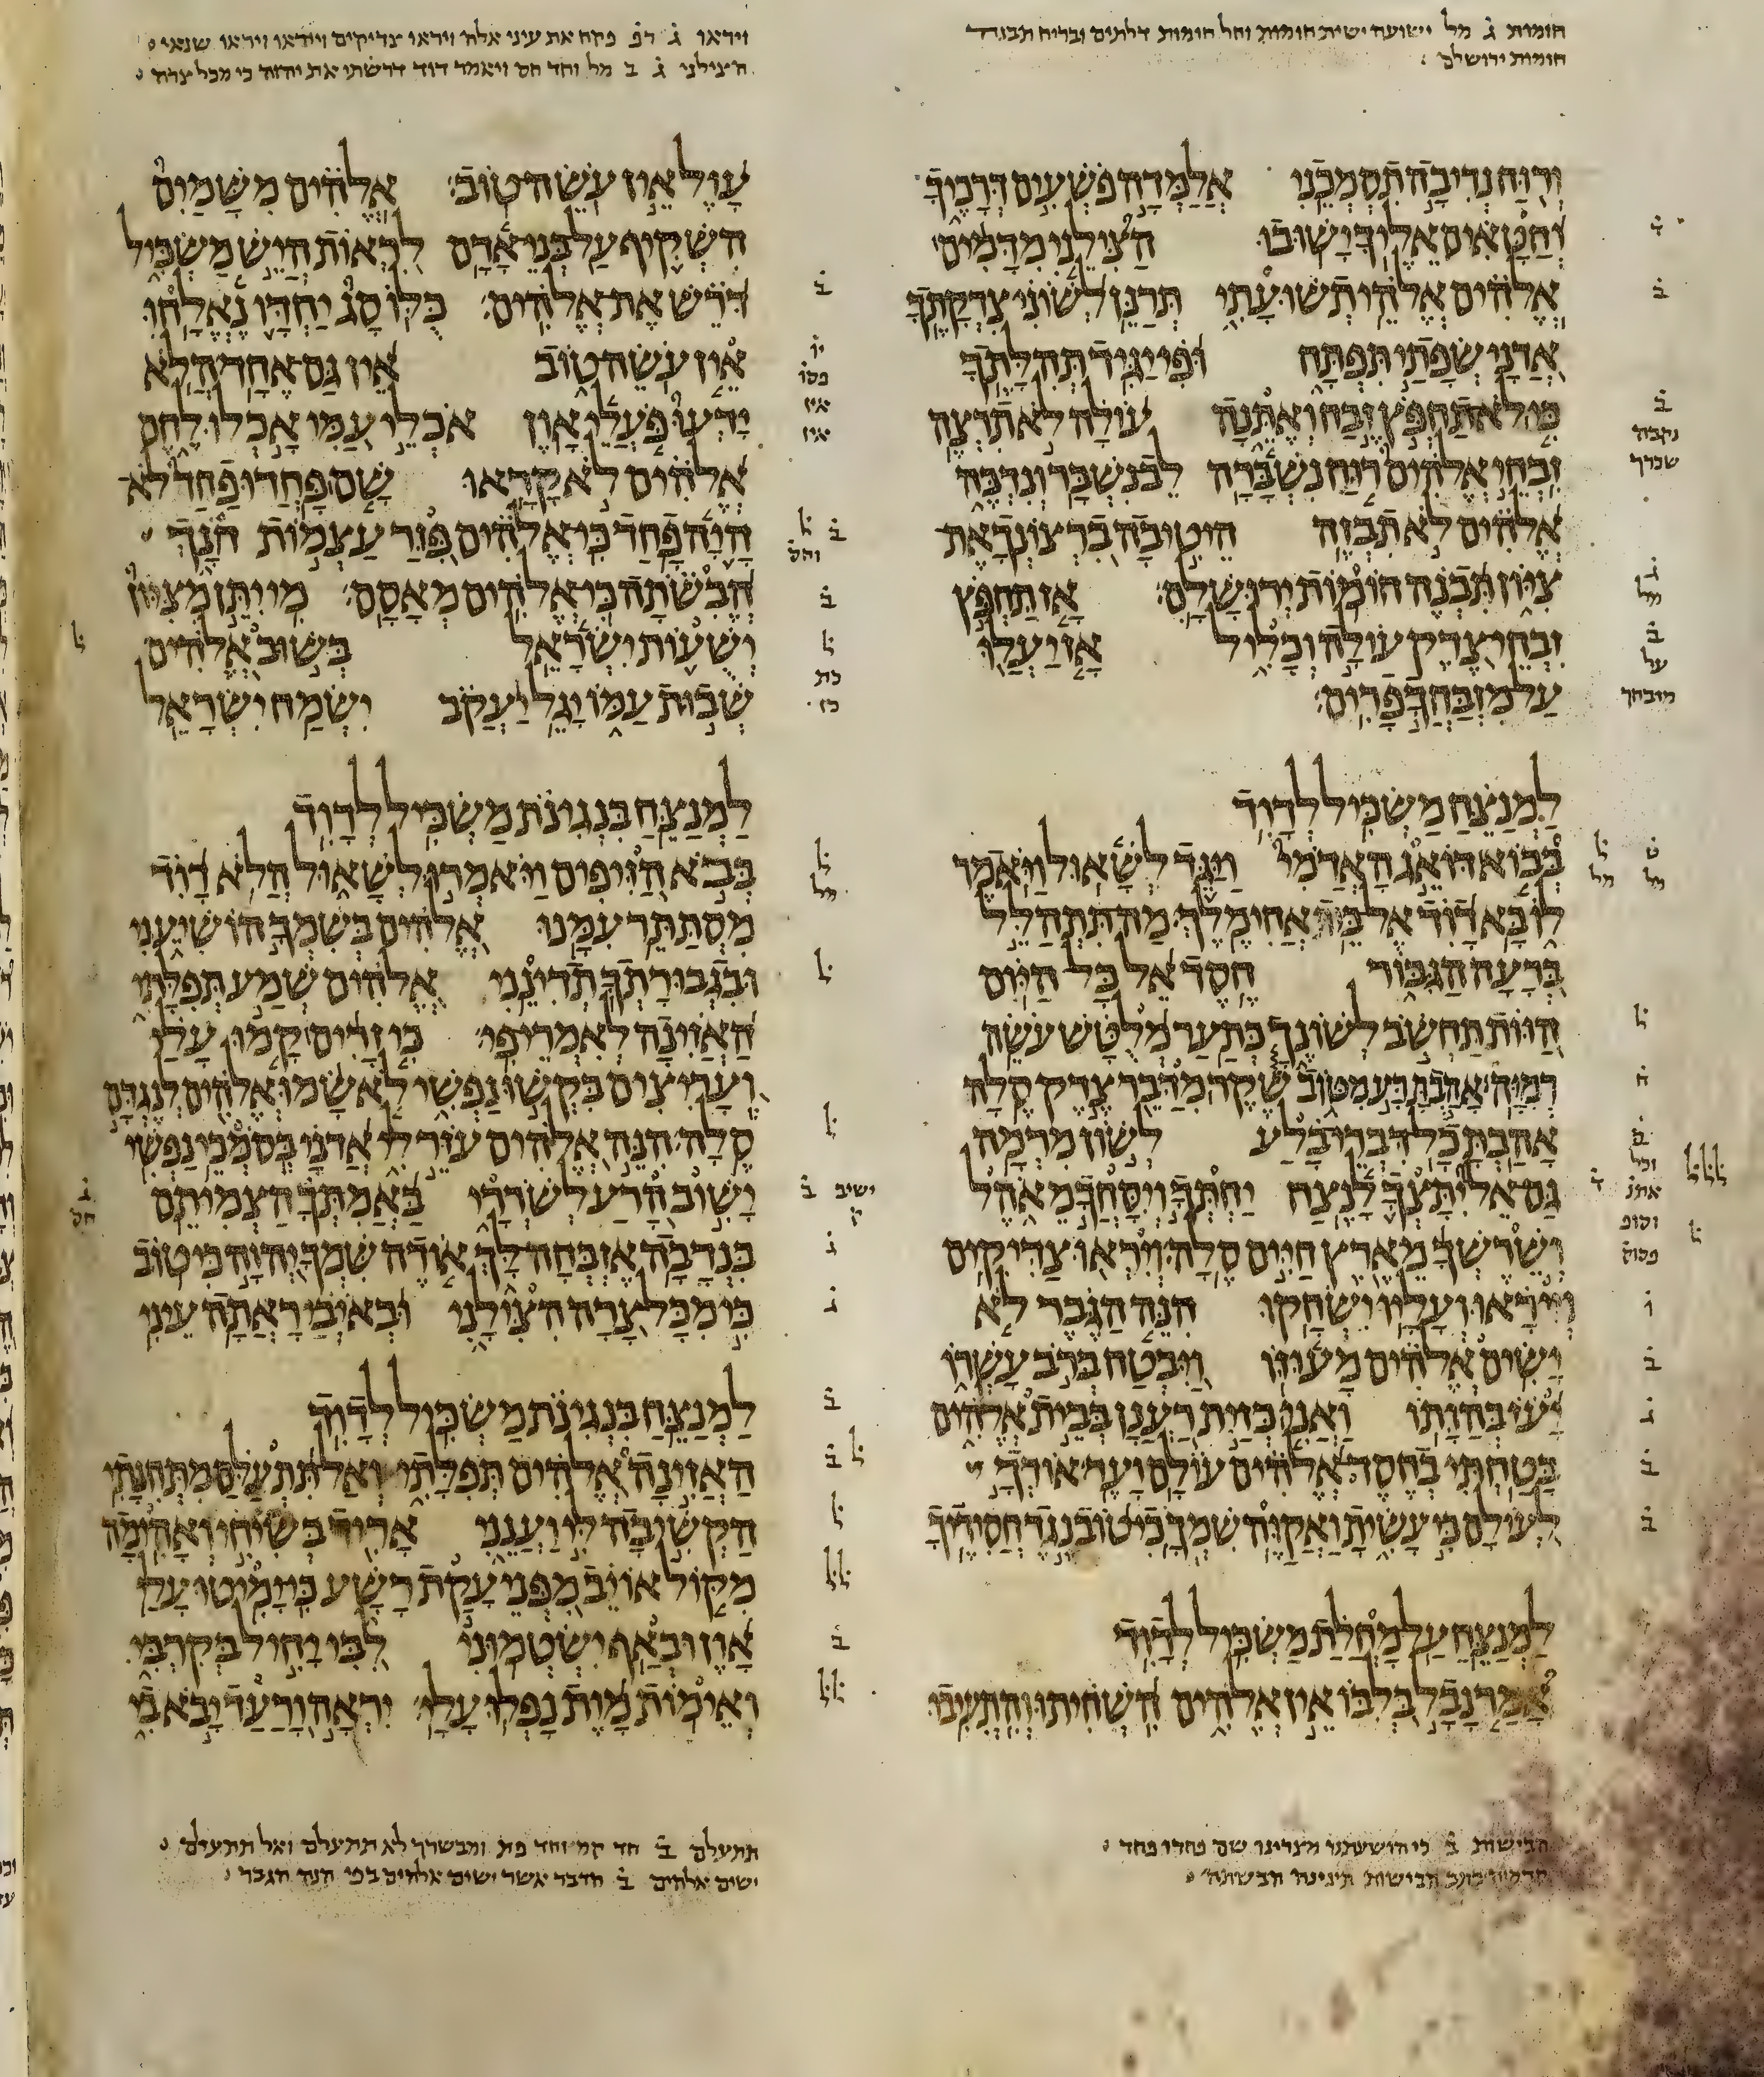 חומות ג מל ישועה ישית חומות וחל חומות דלתים ובריח תבנה
חומות ירושלם
ורוח נדיבה תסמכני אלמדה פשעים דרכיך
וחטאים אליך ישובו הצילני מדמים
אלהים אלהי תשועתי תרנן לשוני צדקתך
אדני שפתי תפתח ופי יגיד תהלתך
כי לא תחפץ זבח ואתנה עולה לא תרצה
זבחי אלהים רוח נשברה לב נשבר ונדכה
אלהים לא תבזה היטיבה ברצונך את
ציון תבנה חומות ירושלם אז תחפץ
זבחי צדק עולה וכליל אז יעלו
על מזבחך פרים
למנצח משכיל לדוד
בבוא דואג האדמי ויגד לשאול ויאמר
לו בא דוד אל בית אחימלך מה תתהלל
ברעה הגבור חסד אל כל היום
הוות תחשב לשונך כתער מלטש עשה
רמיה אהבת רע מטוב שקר מדבר צדק סלה
אהבת כל דברי בלע לשון מרמה
גם אל יתצך לנצח יחתך ויסחך מאהל
ושרשך מארץ חיים סלה ויראו צדיקים
וייראו ועליו ישחקו הנה הגבר לא
ישים אלהים מעוזו ויבטח ברב עשרו
יעז בהותו ואני כזית רענן בבית אלהים
בטחתי בחסד אלהים עולם ועד אודך
לעולם כי עשית ואקוה שמך כי טוב נגד חסידיך
למנצח על מחלת משכיל לדוד
אמר נבל בלבו אין אלהים השחיתו והתעיבו
הבישות ב כי הושעתנו מצרינו שם פחדו פחד
הבישות תינינה הבשותה
ויראו ג רפ פקח את עיני אלה ויראו צדיקים וייראו ויראו שנאי
הצילני ג ב מל וחד חס ויאמר דוד דרשתי את יהוה כי מכל צרה
עול אין עשה טוב אלהים משמים
השקיף על בני אדם לראות היש משכיל
דרש את אלהים כלו סג יחדו נאלחו
אין עשה טוב אין גם אחד הלא
ידעו פעלי און אכלי עמי אכלו לחם
אלהים לא קראו שם פחדו פחד לא
היה פחד כי אלהים פזר עצמות חנך
הבשתה כי אלהים מאסם מי יתן מציון
ישעות ישראל בשוב אלהים
שבות עמו יגל יעקב ישמח ישראל
למנצח בנגינת משכיל לדוד
בבא הזיפים ויאמרו לשאול הלא דוד
מסתתר עמנו אלהים בשמך הושיעני
ובגבורתך תדינני אלהים שמע תפלתי
האזינה לאמרי פי כי זרים קמו עלי
ועריצים בקשו נפשי לא שמו אלהים לנגדם
סלה הנה אלהים עזר לי אדני בסמכי נפשי
ישוב הרע לשררי באמתך הצמיתם
בנדבה אזבחה לך אודה שמך יהוה כי טוב
כי מכל צרה הצילני ובאיבי ראתה עיני
למנצח בנגינת משכיל לדוד
האזינה אלהים תפלתי ואל תתעלם מתחנתי
הקשיבה לי וענני אריד בשיחי ואהימה
מקול אויב מפני עקת רשע כי ימיטו עלי
און ובאף ישטמוני לבי יחיל בקרבי
ואימות מות נפלו עלי יראה ורעד יבא בי
תתעלם ב חד קמ וחד פת ומבשרך לא תתעלם ואל תתעלם
ישים אלהים ב הדבר אשר ישים אלהים בפי הנה הגבר